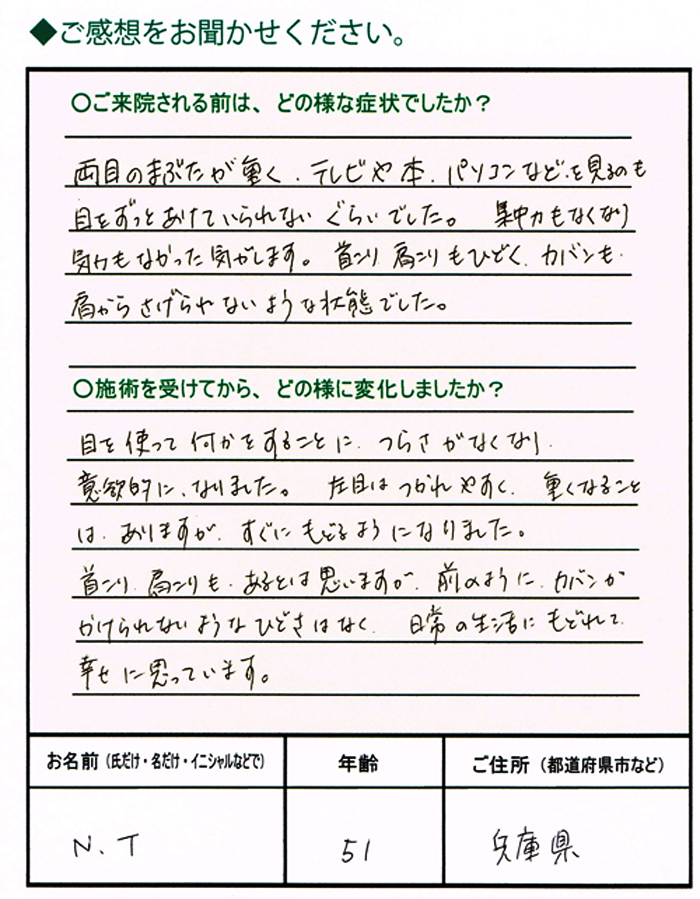 ◆ご感想をお聞かせください。
〇ご来院される前は、どの様な症状でしたか？
両目のまぶたが重く、テレビや本、パソコンなどを見るのも
目をずっとあけていられないぐらいでした。 集中力もなくなり
気力もなかった気がします。首こり、肩こりもひどく、カバンも
肩からさげられないような状態でした。
〇施術を受けてから、どの様に変化しましたか？
目を使って何かをすることに、つらさがなくなり、
意欲的に、なりました。 左目はつかれやすく、重くなること
は、ありますが、すぐにもどるようになりました。
首こり、肩こりも、あるとは思いますが、前のように、カバンが
かけられないようなひどさはなく、日常の生活にもどれて、
幸せに思っています。
お名前（氏だけ・名だけ・イニシャルなどで） 年齢 ご住所（都道府県市など）
N.T 51 兵庫県